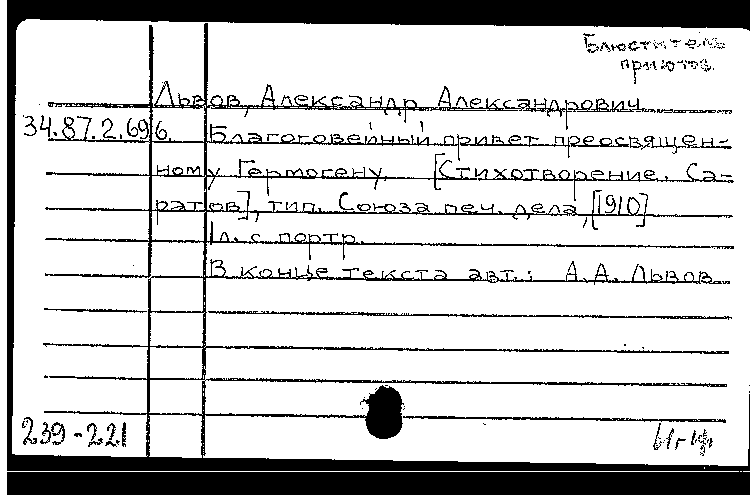 Блюститель
приютов.
Львов, Александр Александрович
34.87.2.696. Благоговейный привет преосвящен-
ному Гермогену. [Стихотворение. Са-
ратов], тип. Союза печ. дела, [1910]
1л. с портр.
В конце текста авт.: А.А. Львов
239-221